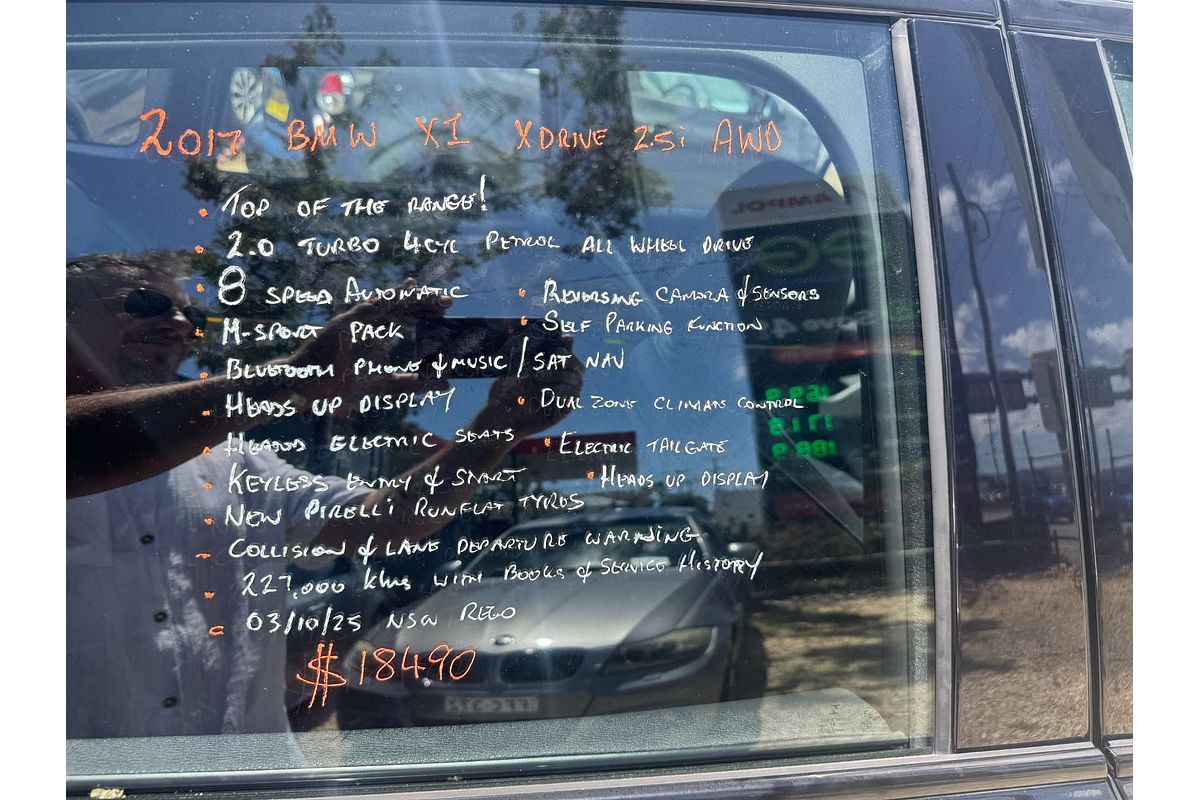 2017 BMW X1 XDRIVE 2.5i AWD
• TOP OF THE RANGE!
• 2.0 TURBO 4CYL PETROL ALL WHEEL DRIVE
• 8 SPEED AUTOMATIC • REVERSING CAMERA & SENSORS
• M-SPORT PACK • SELF PARKING FUNCTION
• BLUETOOTH PHONE & MUSIC / SAT NAV
• HEADS UP DISPLAY • DUAL ZONE CLIMATE CONTROL
• HEATED ELECTRIC SEATS • ELECTRIC TAILGATE
• KEYLESS ENTRY & START • HEADS UP DISPLAY
• NEW PIRELLI RUNFLAT TYRES
• COLLISION & LANE DEPARTURE WARNING
• 227,000 KMS WITH BOOKS & SERVICE HISTORY
• 03/10/25 NSW REGO
$18490
AMPOL